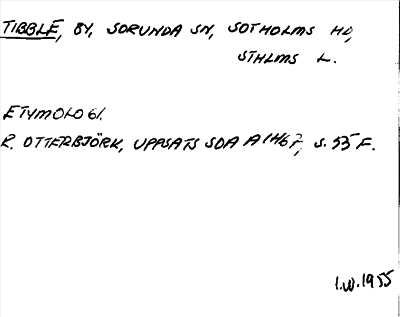 TIBBLE, BY, SORUNDA SN, SOTHOLMS HD,
STHLMS L.
ETYMOLOGI.
R. OTTERBJÖRK, UPPSATS SOA A 1467, S. 53 F.
I.W. 1955